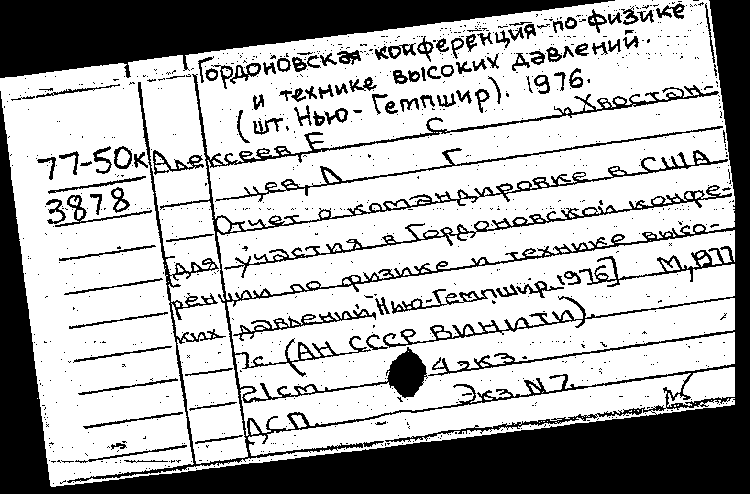 Гордоновская конференция по физике
и технике высоких давлений.
(шт. Нью-Гемпшир). 1976.
77-50к
3878
Алексеев, Е С и Хвостан-
цев, Л Г
Отчет о командировке в США
[для участия в Гордоновской конфе-
ренции по физике и технике высо-
ких давлений, Нью-Гемпшир, 1976] М., 1977
7с (АН СССР ВИНИТИ).
21 ст. 4 экз.
ДСП. Экз. N 7.